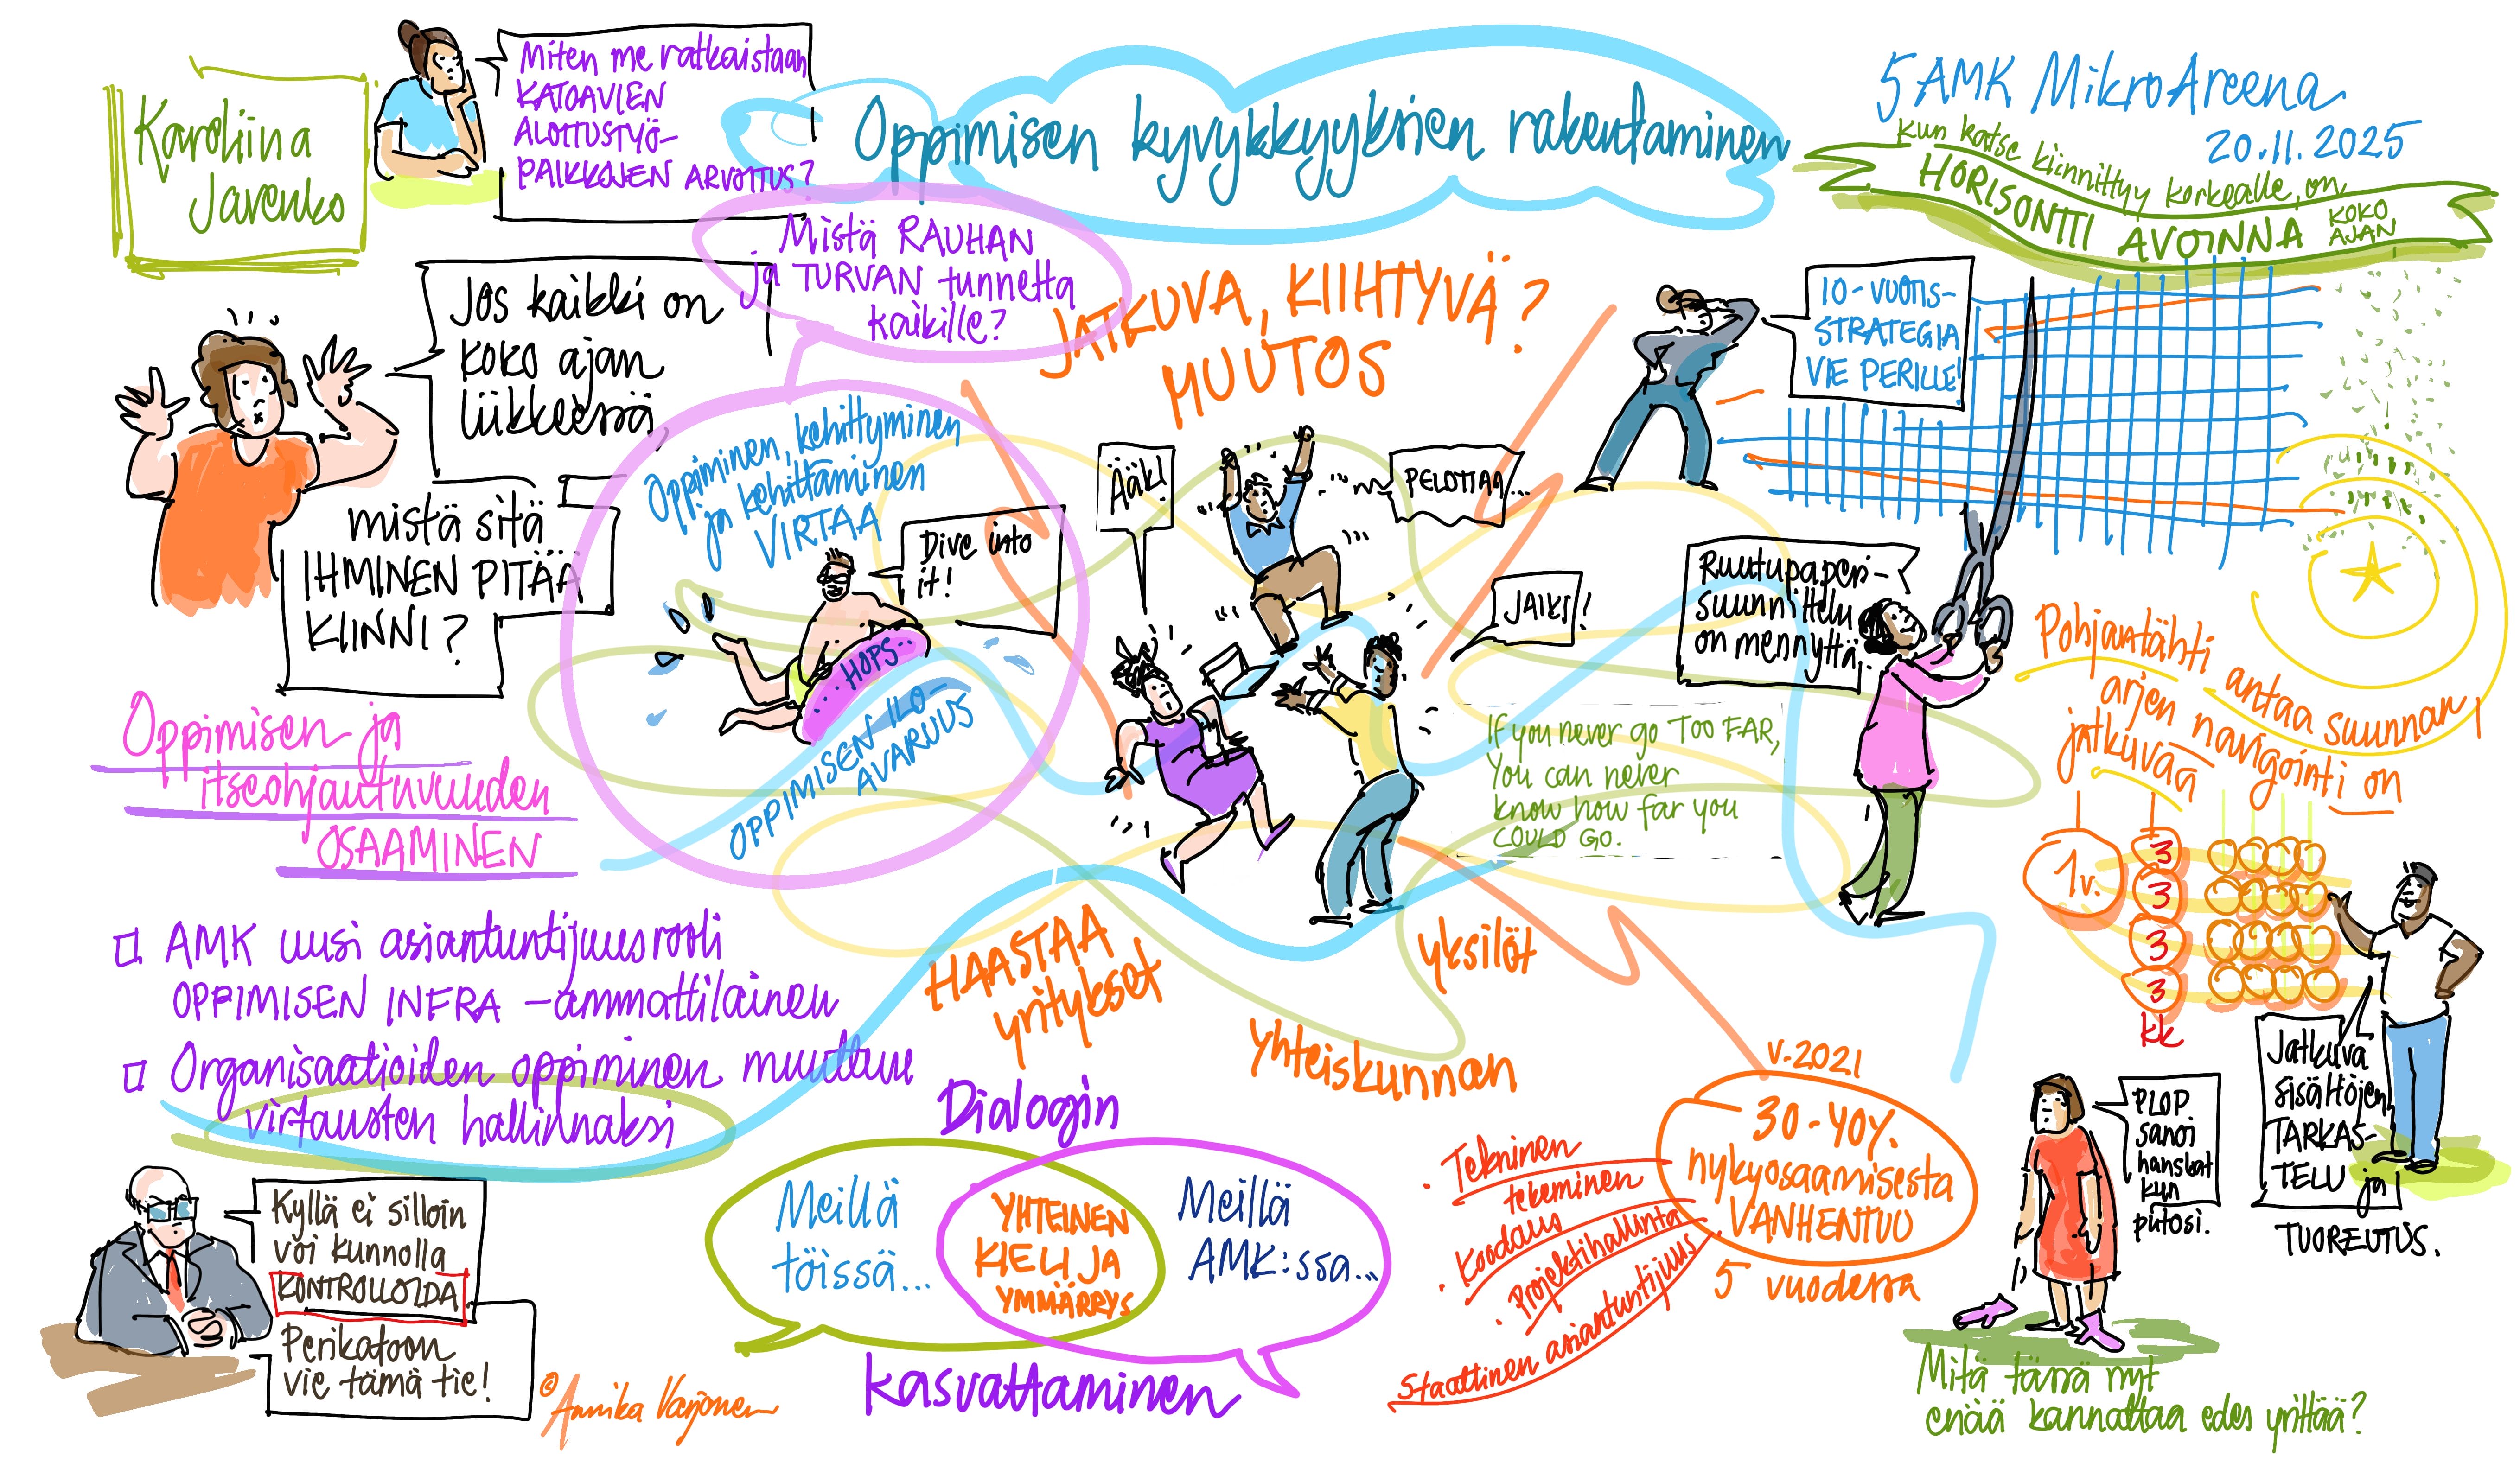 Karoliina
Javenko
Miten me ratkaistaan
KATOAVIEN
ALOITUSTYÖ-
PAIKKOJEN ARVOITUS?
Oppimisen kyvykkyyksien rakentaminen
5 AMK MikroAreena
20.11.2025
kun katse kiinnittyy korkealle, on
HORISONTTI AVOINNA KOKO
AJAN
Mistä RAUHAN
ja TURVAN tunnetta
kaikille?
JATKUVA, KIIHTYVÄ?
MUUTOS
Jos kaikki on
koko ajan
liikkeessä,
mistä sitä
IHMINEN PITÄÄ
KIINNI?
Oppiminen, kehittyminen
ja kehittäminen
VIRTAA
Dive into
it!
HOPS
OPPIMISEN ILO-
AVARUUS
ÄÄK!
PELOTTAA...
JAIKS!
10-VUOTIS-
STRATEGIA
VIE PERILLE!
Ruutupaperi-
suunnittelu
on mennyttä,
If you never go TOO FAR,
You can never
know how far you
COULD GO.
Pohjantähti antaa suunnan,
arjen navigointi on
jatkuvaa
1v.
3
3
3
3
kk
Jatkuva
sisältöjen
TARKAS-
TELU ja
TUOREUTUS.
Oppimisen ja
itseohjautuvuuden
OSAAMINEN
AMK uusi asiantuntijuusrooli
OPPIMISEN INFRA -ammattilainen
Organisaatioiden oppiminen muuttuu
virtausten hallinnaksi
Kyllä ei silloin
voi kunnolla
KONTROLLOIDA
Perikatoon
vie tämä tie!
© Annika Varjonen
HAASTAA
yritykset
yksilöt
yhteiskunnan
Dialogin
Meillä
töissä...
YHTEINEN
KIELI JA
YMMÄRRYS
Meillä
AMK:ssa...
kasvattaminen
v.2021
30-40%
nykyosaamisesta
VANHENTUU
5 vuodessa
• Tekninen
tekeminen
• Koodaus
• Projektihallinta
Staattinen asiantuntijuus
PLOP
sanoi
hanskat
kun
putosi.
Mitä tässä nyt
enää kannattaa edes yrittää?